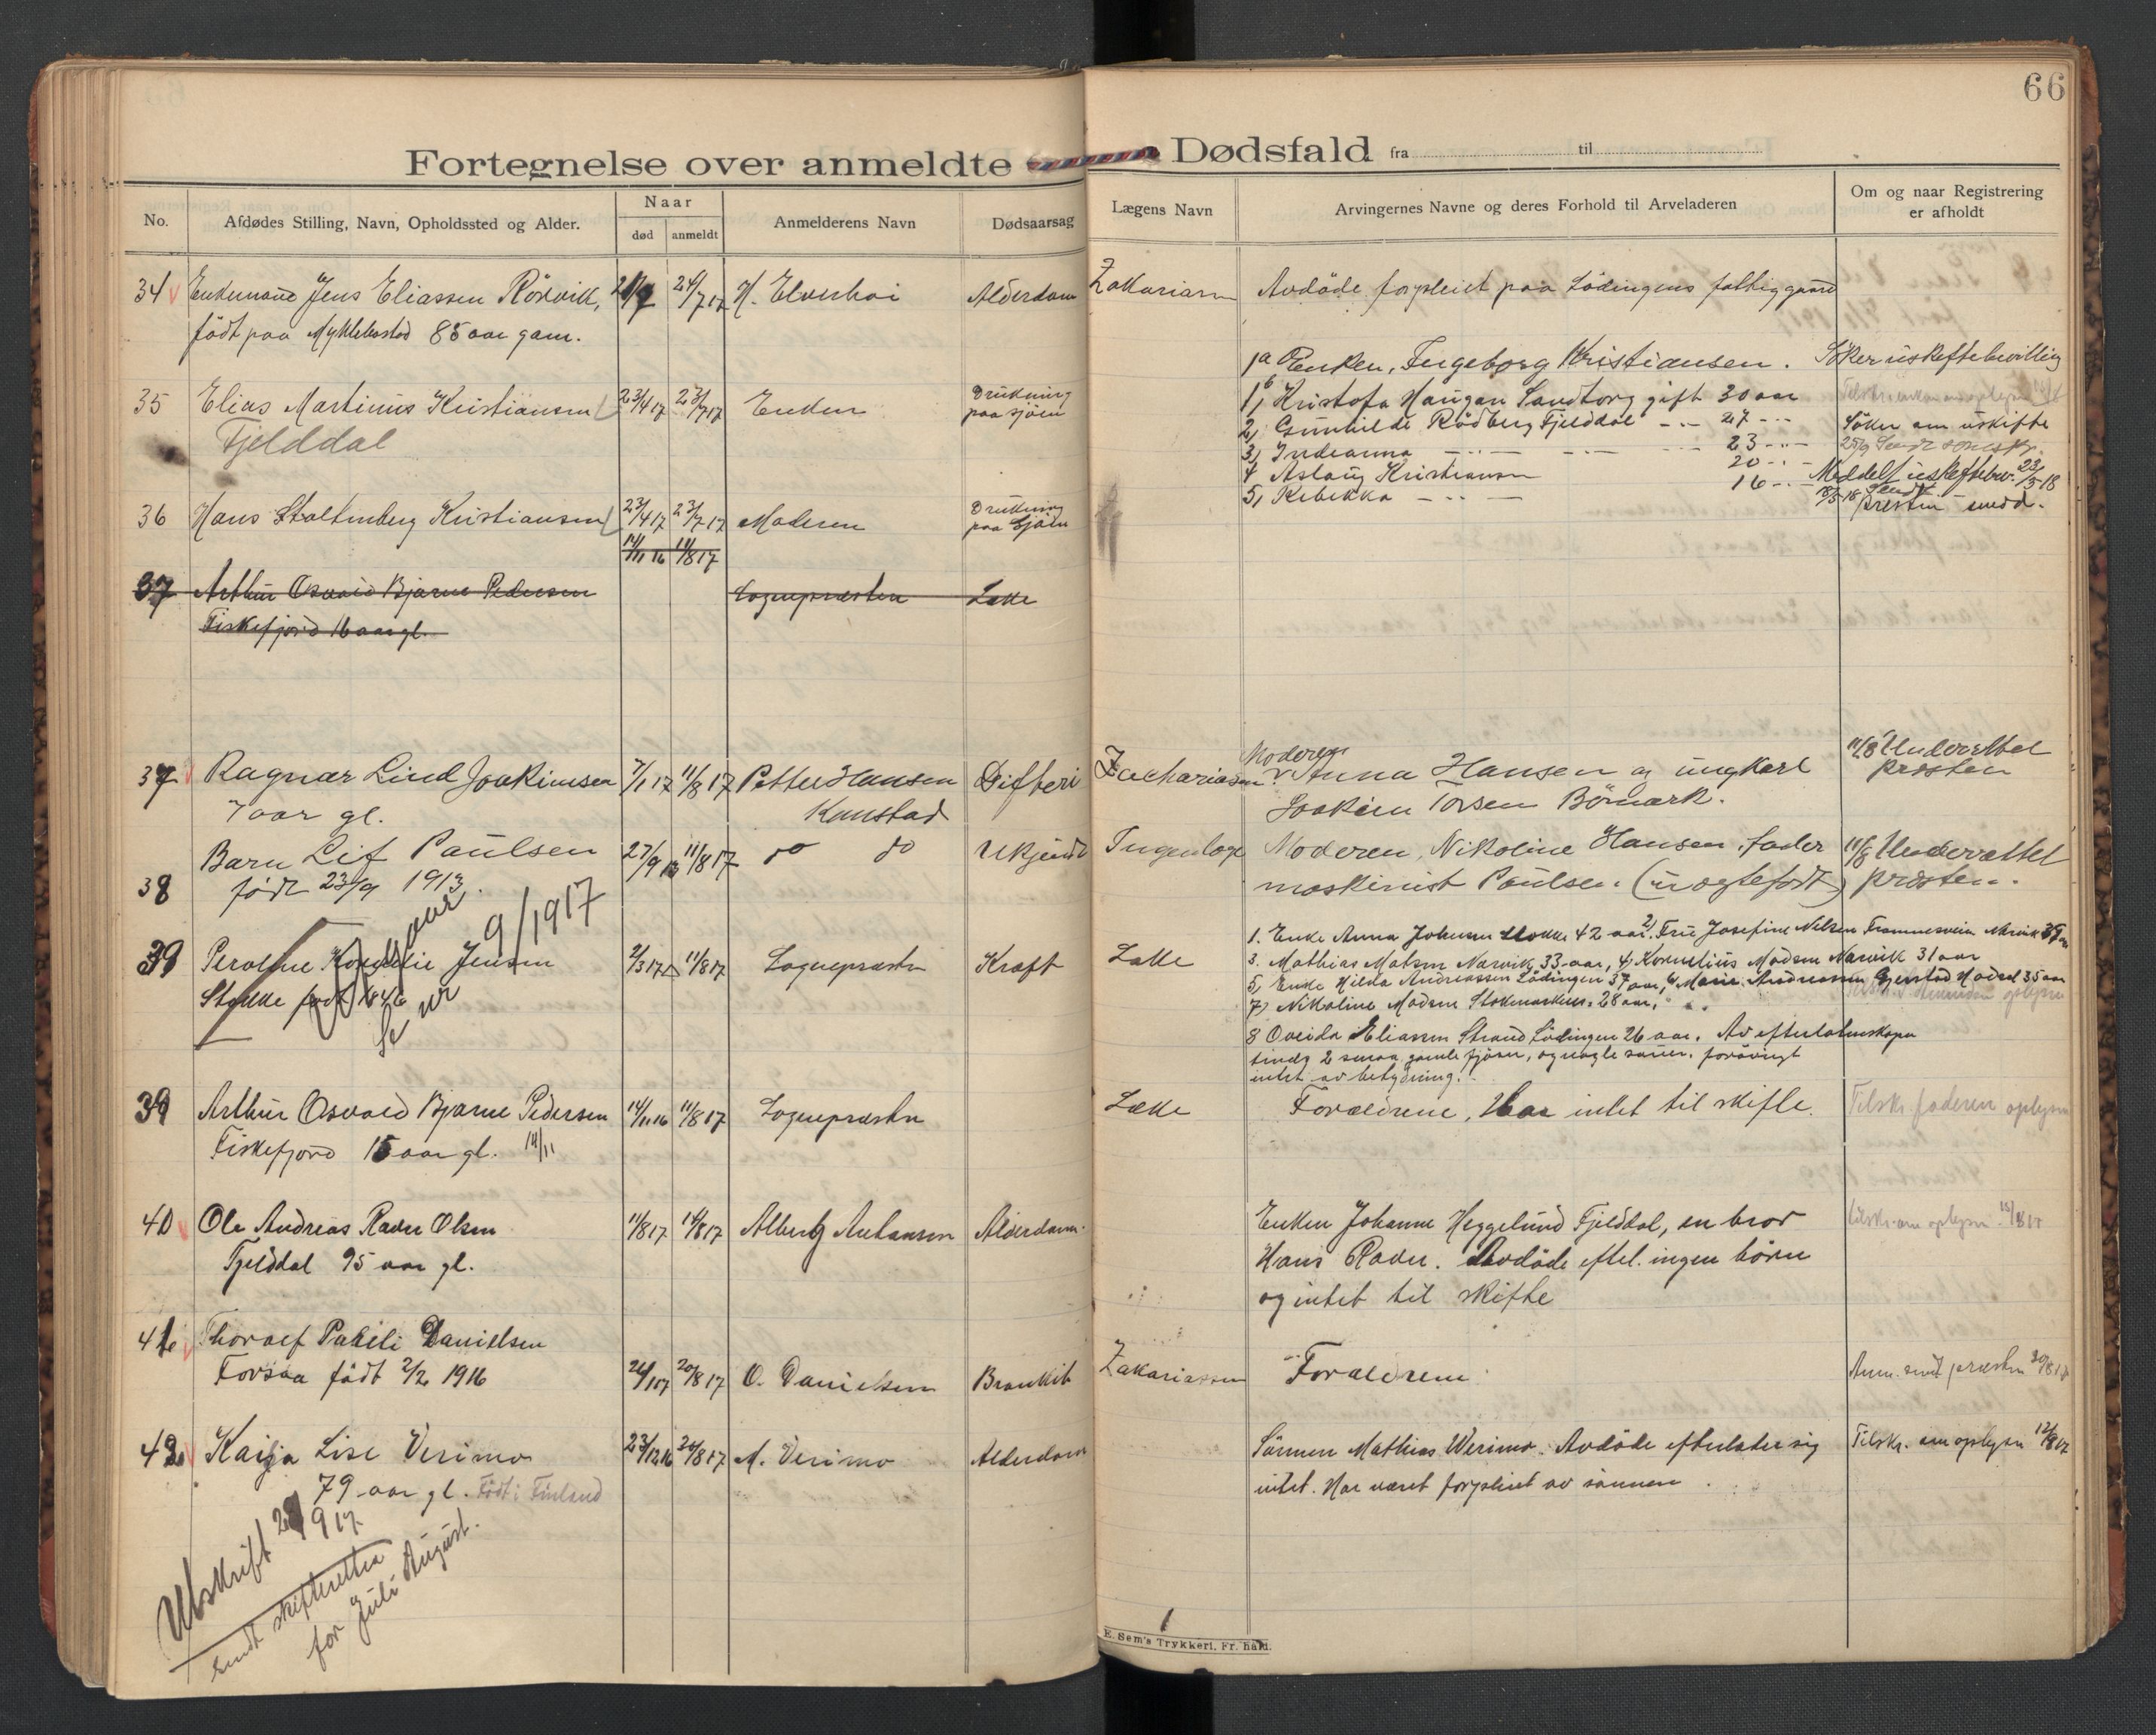 66
Fortegnelse over anmeldte Dødsfald fra til
No. Afdødes Stilling, Navn, Opholdssted og Alder. Naar død anmeldt Anmelderens Navn Dødsaarsag Lægens Navn Arvingernes Navne og deres Forhold til Arveladeren Om og naar Registrering er afholdt
34 Enkemand Jens Eliassen Rörvik, 24/7 17 H. Elverhöi Alderdom Zakariasen Avdöde forpleiet paa Lödingens fattiggaard
födt paa Myklebostad 85 aar gam.
1a Enken, Ingeborg Kristiansen. Söker uskiftebevilling
35 Elias Martinus Kristiansen 23/4 17 23/7 17 Enken Drukning paa sjöen
Fjelddal
1, Kristofa Haugan Sandtorg gift 30 aar
2, Gunhilde Rödberg Fjelddal 27 Söker om uskifte
3, Indianna 23
4 Aslaug Kristiansen 20 Meddelt uskiftebev. 23/5 18
5, Rebekka 16 18/5 18 sendt presten
36 Hans Stoltenberg Kristiansen 23/4 17 23/7 17 Moderen Drukning paa Sjöen
14/11 16 11/8 17
37 Arthur Osvald Bjarne Pedersen Sognepræsten Lække
Fiskefjord 16 aar gl.
37 Ragnar Lind Joakimsen 7/1 17 11/8 17 Petter Hansen Difteri Zachariasen Moderen Anna Hansen og ungkarl 11/8 Underettet præsten
7 aar gl. Kanstad Joakim Torsen Börnark.
38 Barn Leif Paulsen 27/9 13 11/8 17 do do Ukjendt Ingen læge Moderen, Nikoline Hansen, fader 11/8 Underættet
födt 23/9 1913. maskinist Paulsen. (uægtefödt) præsten.
9/1917
39 Peroline Kornelie Jensen 2/3 17 11/8 17 Sognepræsten Kræft Lække
Stokke født 1846
1. Enke Anna Johnsen Stokke 42 aar 2, Frue Josefine Nilsen Framnesveien Narvik
3. Mathias Matsen Narvik 33 aar, 4, Kornelius Madsen Narvik 31 aar
5, Enke Hilda Andreassen Lödingen 37 aar, 6, Marie Andreassen Gjerstad Hadsel 35 aar
7, Nikoline Madsen Stokmarknes 28 aar.
8 Oveida Eliassen Strand Lödingen 26 aar. Av efterlatenskaper
findes 2 smaa gamle fjöser, og nogle sauer. forövrigt
intet av betydning.
39 Arthur Osvald Bjarne Pedersen 14/11 16 11/8 17 Sognepræsten Lække Forældrene, Har intet til skifte. Tilskr. faderen oplysn
Fiskefjord 15 aar gl. 14/11
40 Ole Andreas Raver Olsen 11/8 17 14/8 17 Albert Antonsen Alderdom. Enken Johanne Heggelund Fjelddal, en bror Tilskr. om oplysn.
Fjelddal 95 aar gl. Hans Raver. Avdöde eftel. ingen börn
og intet til skifte
41 Thoralf Paheli Danielsen
Forsaa födt 2/2 1916 20/8 17 O. Danielsen Bronkit Zakariassen Forældrene Anm. sendt præsten 20/8 17
42 Kaisa Lise Verimo 23/12 16 20/8 17 M. Verimo Alderdom Sönnen Mathias Werimo. Avdöde efterlater sig Tilskr. om oplysn
79 aar gl. Födt i Finland intet. Har været forpleiet av sönnen.
Utskrift 28/9 17.
sendt skifteretten
for Juli August.
E. Sem's Trykkeri, Fr. hald.